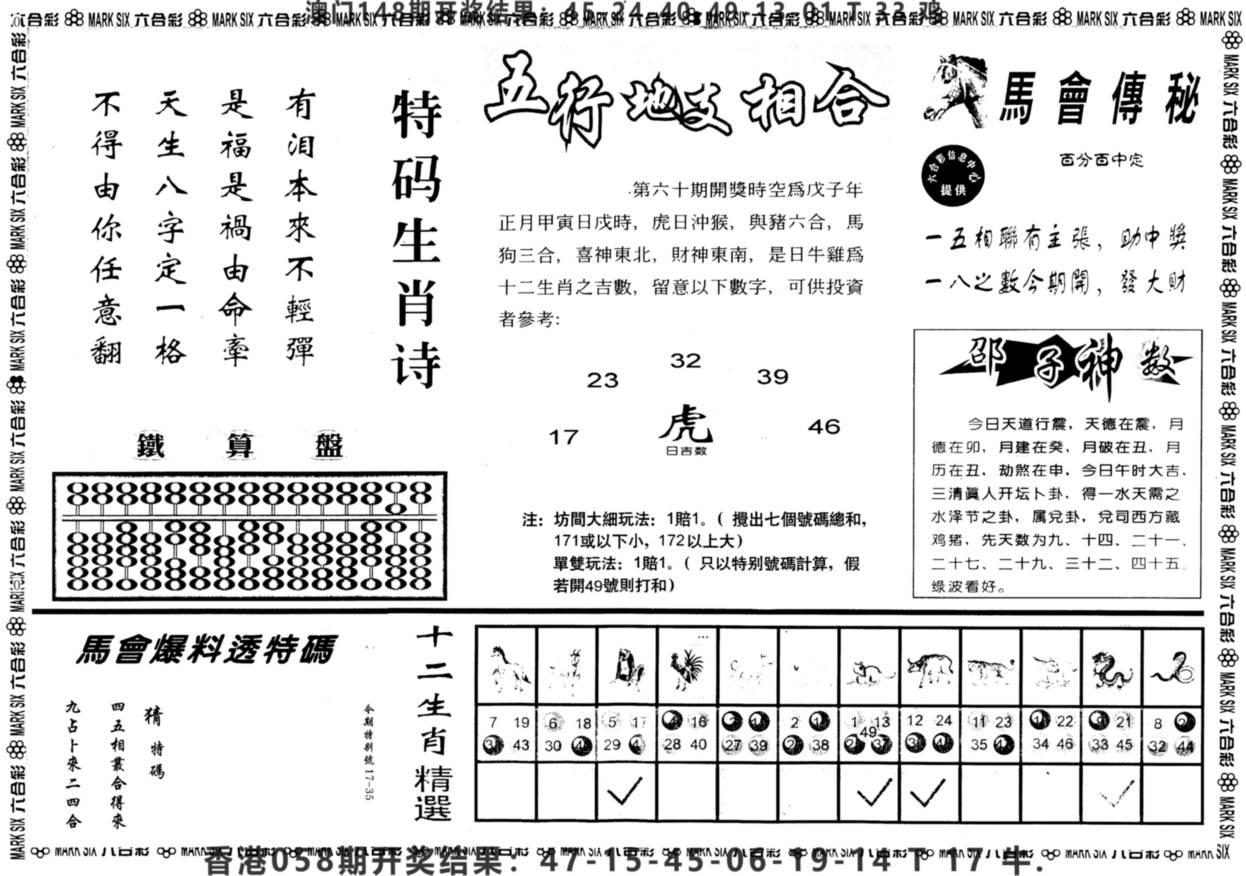 澳门148期开奖结果：45-24-40-49-13-01 T 33 鸡
MARK SIX 六合彩
特码生肖诗
有泪本來不輕彈
是福是禍由命牽
天生八字定一格
不得由你任意翻
鐵算盤
五行地支相合
第六十期開獎時空爲戊子年
正月甲寅日戌時，虎日沖猴，與豬六合，馬
狗三合，喜神東北，財神東南，是日牛雞爲
十二生肖之吉數，留意以下數字，可供投資
者參考：
32
23
39
17
虎
46
日吉数
注：坊間大細玩法：1賠1。（攪出七個號碼總和，
171或以下小，172以上大）
單雙玩法：1賠1。（只以特別號碼計算，假
若開49號則打和）
馬會傳秘
六合彩信息中心
提供
百分百中定
一五相聯有主張，助中獎
一八之數今期開，發大財
邵子神数
今日天道行震、天德在震、月
德在卯、月建在癸、月破在丑、月
历在丑、劫煞在申、今日午时大吉、
三清真人开坛卜卦、得一水天需之
水泽节之卦，属兌卦，兌司西方藏
鸡猪，先天数为九、十四、二十一、
二十七、二十九、三十二、四十五。
绿波看好。
馬會爆料透特碼
猜特碼
四五相叢合得來
九占卜來二四合
今期特别號17-35
十二生肖精選
7 19 6 18 5 17 16 2 1 13 12 24 11 23 22 9 21 8
43 30 29 28 40 27 39 38 49 37 35 34 46 33 45 32 44
香港058期开奖结果：47-15-45-06-19-14 T 17 牛.